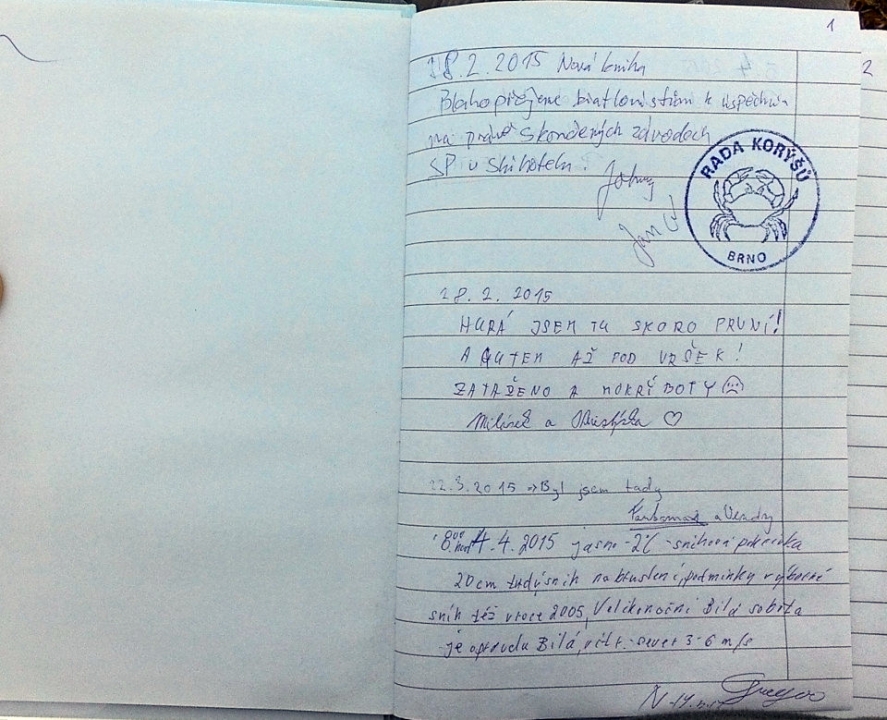 1
2
18.2.2015 Nová kniha
Blahopřejeme biatlonistům k úspěchům
na právě skončených závodech
SP v
Johny
Jan
RADA KORÝŠŮ
BRNO
28. 2. 2015
HURÁ JSEM TU SKORO PRVNÍ!
A AUTEM AŽ POD VRŠEK!
ZATAŽENO A MOKRÝ BOTY ☹
Milánek a ♡
22.3.2015 → Byl jsem tady
a Vendy
8.00 hod 4.4.2015 jasno -2°C - sněhová pokrývka
20cm tvrdý sníh na bruslení, podmínky výborné
sníh též v roce 2005, Velikonoční Bílá sobota
je opravdu Bílá, vítr - sever 3-6 m/s